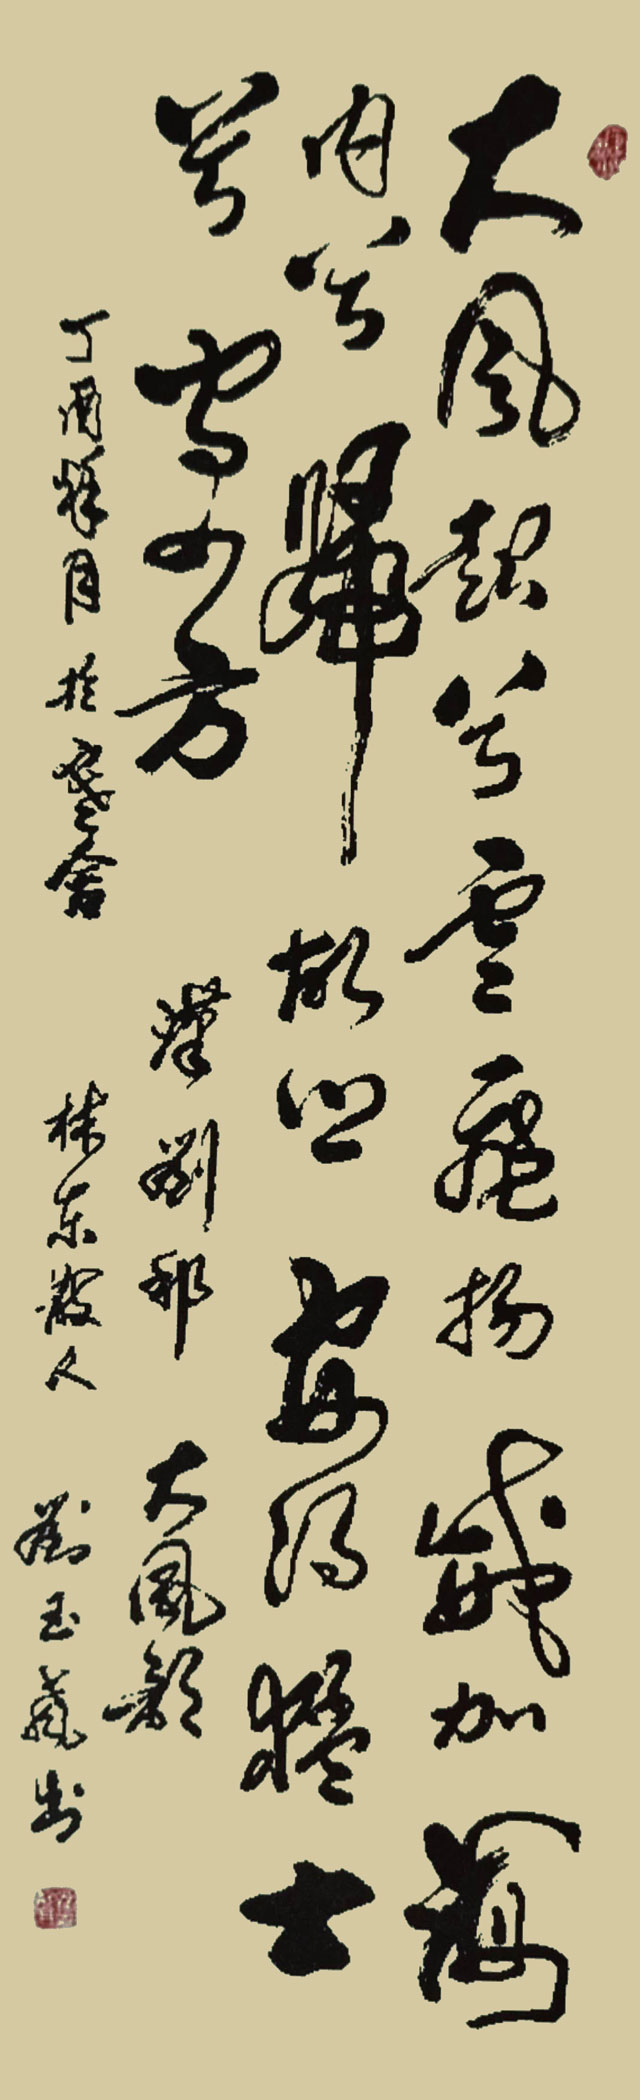 大風起兮雲飛揚威加海
内兮歸故鄉安得猛士
兮守四方 漢劉邦 大風歌
丁酉 月於 舍 林东散人 劉玉 书